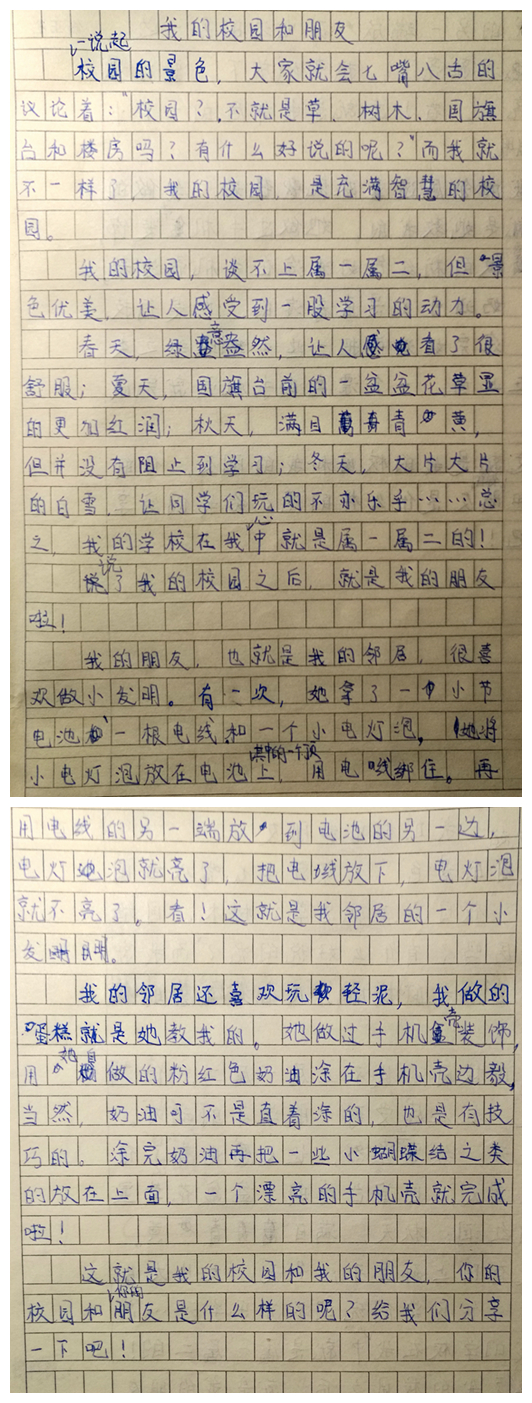 我的校园和朋友
一说起校园的景色，大家就会七嘴八古的
议论着：“校园？不就是草、树木、国旗
台和楼房吗？有什么好说的呢？”而我就
不一样了，我的校园，是充满智慧的校
园。
我的校园，谈不上属一属二，但景
色优美，让人感受到一股学习的动力。
春天，绿意盎然，让人看了很
舒服；夏天，国旗台前的一盆盆花草显
的更加红润；秋天，满目青黄，
但并没有阻止到学习；冬天，大片大片
的白雪，让同学们玩的不亦乐乎……总
之，我的学校在我心中就是属一属二的！
说了我的校园之后，就是我的朋友
啦！
我的朋友，也就是我的邻居，很喜
欢做小发明。有一次，她拿了一个小节
电池和一根电线和一个小电灯泡，她将
小电灯泡放在电池其中的一个顶上，用电线绑住。再
用电线的另一端放到电池的另一边，
电灯泡就亮了，把电线放下，电灯泡
就不亮了。看！这就是我邻居的一个小
发明。
我的邻居还喜欢玩轻泥，我做的
蛋糕就是她教我的。她做过手机壳装饰，
用她自做的粉红色奶油涂在手机壳边毅，
当然，奶油可不是直着涂的，也是有技
巧的。涂完奶油再把一些小蝴蝶结之类
的放在上面，一个漂亮的手机壳就完成
啦！
这就是我的校园和我的朋友，你的
校园和你的朋友是什么样的呢？给我们分享
一下吧！